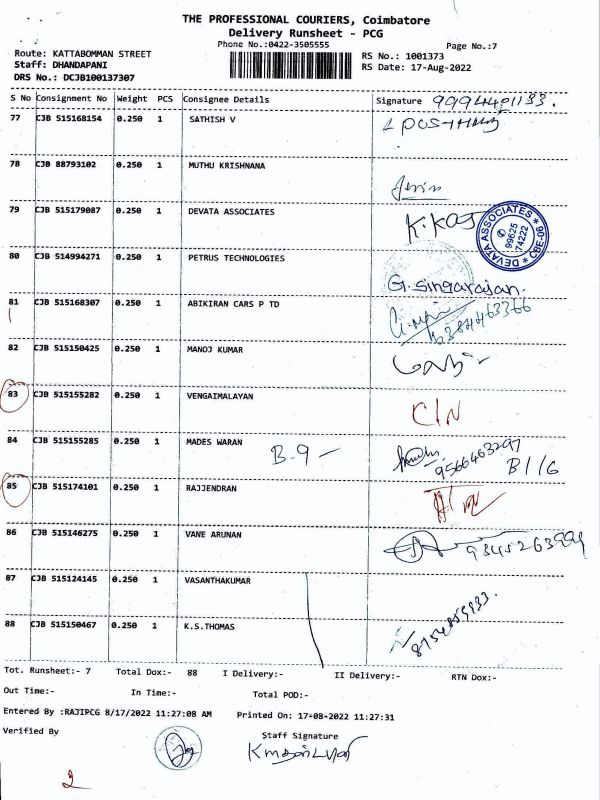 THE PROFESSIONAL COURIERS, Coimbatore
Delivery Runsheet - PCG
Phone No.:0422-3505555
Page No.:7
Route: KATTABOMMAN STREET
RS No.: 1001373
Staff: DHANDAPANI
RS Date: 17-Aug-2022
DRS No.: DCJB100137307
S No Consignment No Weight PCS Consignee Details Signature 9994401133.
77 CJB 515168154 0.250 1 SATHISH V
78 CJB 88793102 0.250 1 MUTHU KRISHNANA
79 CJB 515179087 0.250 1 DEVATA ASSOCIATES K.KAJ
DEVATA ASSOCIATES * CBE-06 *
99625
74222
80 CJB 514994271 0.250 1 PETRUS TECHNOLOGIES G. Singarajan.
81 CJB 515168307 0.250 1 ABIKIRAN CARS P TD 6384463366
82 CJB 515150425 0.250 1 MANOJ KUMAR
83 CJB 515155282 0.250 1 VENGAIMALAYAN C/N
84 CJB 515155285 0.250 1 MADES WARAN B.9 - 9566463297
B116
85 CJB 515174101 0.250 1 RAJJENDRAN
86 CJB 515146275 0.250 1 VANE ARUNAN
87 CJB 515124145 0.250 1 VASANTHAKUMAR
88 CJB 515150467 0.250 1 K.S.THOMAS
Tot. Runsheet:- 7 Total Dox:- 88 I Delivery:- II Delivery:- RTN Dox:-
Out Time:- In Time:- Total POD:-
Entered By :RAJIPCG 8/17/2022 11:27:08 AM Printed On: 17-08-2022 11:27:31
Verified By Staff Signature
2